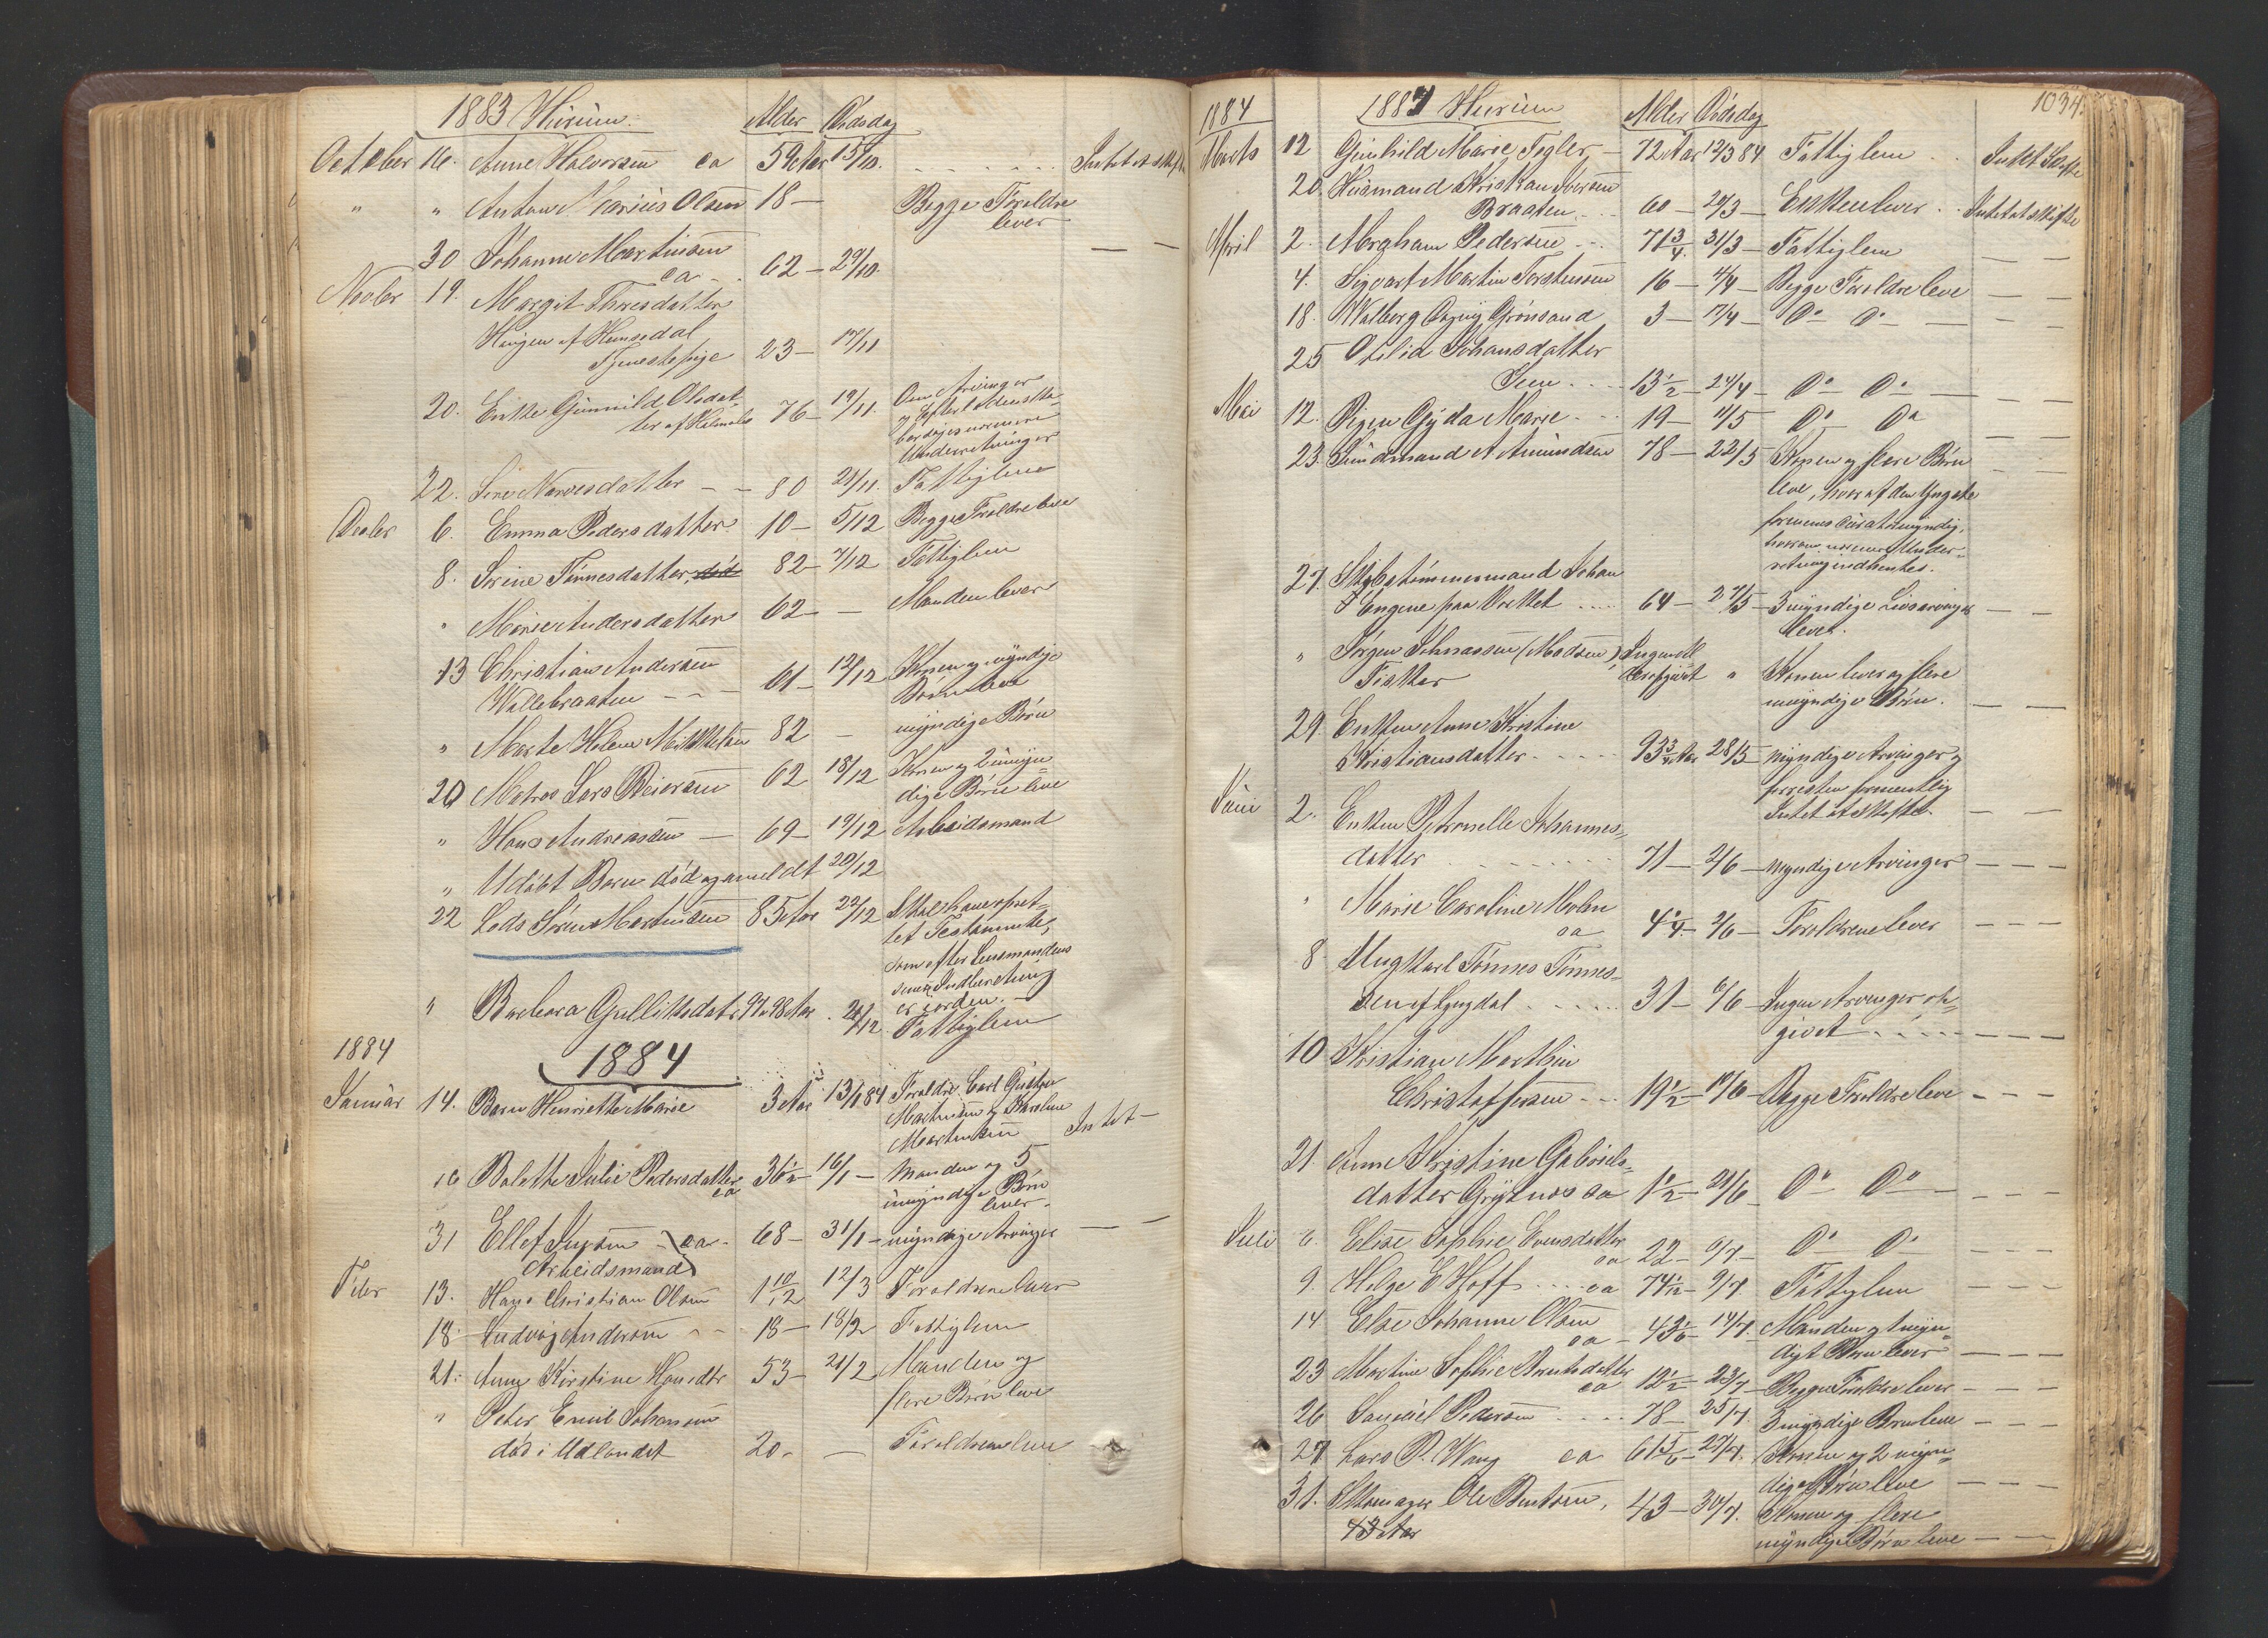 1883 Hurum.
Alder Dødsdag
October 16. Anne Halvorsen ca 59 Aar 15/10. Intet at skifte
" " Anton Marius Olsen 18 — Begge Foreldre
lever
30 Johanne Martinsen
ca 62 — 29/10. — —
Novbr 19. Margit Thoresdatter
af Hemsedal
Tjenestepige 23 — 17/11
20. Enke Gunnild Olsdat-
ter af Holmsbo 76 — 19/11. Om Arvinger
og Efterladenska-
ber søges nærmere
Underretninger
22. Narvesdatter — — 80 21/11. Fattiglem
Decbr 6. Emma Pedersdatter 10 — 5/12 Begge Foreldre leve
8. Tønnesdatter, 82 — 7/12 Fattiglem
" Marie Andersdatter 62 — — Manden lever
13 Christian Andersen
Wallebraaten — — — 61 — 12/12 Konen og myndige
Børn leve
" Marte Helene Mikkelsen 82 — myndige Børn
20 Matros Lars Reiersen 62 18/12 Konen og 2 umyn-
dige Børn leve
" Hans Andreassen — 69 — 19/12 Arbeidsmand
" Udøbt Barn død og anmeldt 20/12
22 Lods Søren Martinsen 85 Aar 22/12 Skal have opret-
tet Testamente,
som efter Lensmandens
Indberetning
er i orden. —
" Barbara Gulliksdat. 97 a 98 Aar . 21/12. Fattiglem
1884
1884
Januar 14. Barn Henriette Marie 3 Aar 13/1 84 Foreldre Carl Gustav
Martinsen og Karoline
Martinsen Intet —
16 Bolette Julie Pedersdatter
ca 36 1/2 — 16/1 — Manden og 5
umyndige Børn
lever.
31 Ellef Jensen — ca. 68 — 31/1 — myndige Arvinger — —
(Arbeidsmand)
Febr 13. Hans Christian Olsen 1 10/12 12/3 Foreldrene lever
18. Ludvig Andersen — 18 — 18/2 Fattiglem
21. Anne Kirstine Hansdtr 53 — 21/2 Manden og
flere Børn leve
" Peter Emil Johansen
død i Udlandet 20 — — Foreldrene leve
1034.
1884
1884 Hurum
Alder Dødsdag
Marts 12 Gunhild Marie Fegler — 72 Aar 12/3 84 Fattiglem . . Intet Skifte
20 Huusmand Kristian Iversen
Braaten . . . 60 — 20/3 — Enken lever . . Intet at skifte
April 2. Abraham Pedersen . . . 71 3/4. 31/3 — Fattiglem — —
4. Sigvart Martin Torstensen 16 — 4/4 — Begge Foreldre leve — —
18. Walborg Dagny Grønsand 3 — 17/4 — Do Do — — —
25 Otilia Johansdatter
. . . . 13 1/2 — 24/4 — Do Do — — —
Mai 12. Pigen Gyda Marie . . . 19 — 11/5 Do Do — —
23. Huusmand A Amundsen 78 — 22/5 Konen og flere Børn — —
leve, hvoraf den Yngste
formenes
hvorom nærmere Under-
retning indhentes.
27. Skibstømmermand Johan
Engene paa Vrittet . . . . 64 — 27/5 — 3 myndige Livsarvinger — —
lever.
" Jørgen Johnassen (Madsen) Ingen Al-
Fisker der opgivet " Konen lever og flere
myndige Børn. — —
29. Enken Anne Kristine
Kristiansdatter . . . . . 93 3/4 Aar 28/5 myndige Arvinger og
forresten formentlig
Intet at skifte. — —
Juni 2. Enken Petronelle Johannes-
datter . . . . . . . . 71 — 2/6 — myndige Arvinger — — —
" Marie Caroline Molin
ca 4 1/4. 2/6 — Foreldrene lever — — —
8 Ungkarl Tønnes Tønnes-
sen af Lyngdal . . . . . 31 — 6/6 — Ingen Arvinger op-
givet . . . . . — — —
10 Kristian Marthin
Christoffersen . . . 19 1/2 — 10/6 — Begge Foreldre leve — — —
21 Anne Kristine Gabriels-
datter Grytnes ca 1 1/2 — 21/6 — Do Do — — — —
Juli 6. Elise Sophie Evensdatter
ca 22 — 6/7 — Do Do — — —
9. Helge E Hoff . . . . ca 74 1/12 — 9/7 Fattiglem — — —
14 Else Johanne Olsen
ca — 43 1/6 — 14/7. Manden og 1 myn-
digt Barn lever — — —
23 Martine Sophie Berntsdatter
ca 12 1/2 — 23/7 — Begge Foreldre lever — — —
26 Samuel Pedersen . . . . 78 — 25/7. 3 myndige Børn leve — — —
27 Lars P. Wang ca 61 5/6 — 27/7. Konen og 2 myn-
dige Børn leve — — —
31. Skomager Ole Berntsen, 43 — 30/7. Konen og flere
43 Aar myndige Børn leve — —